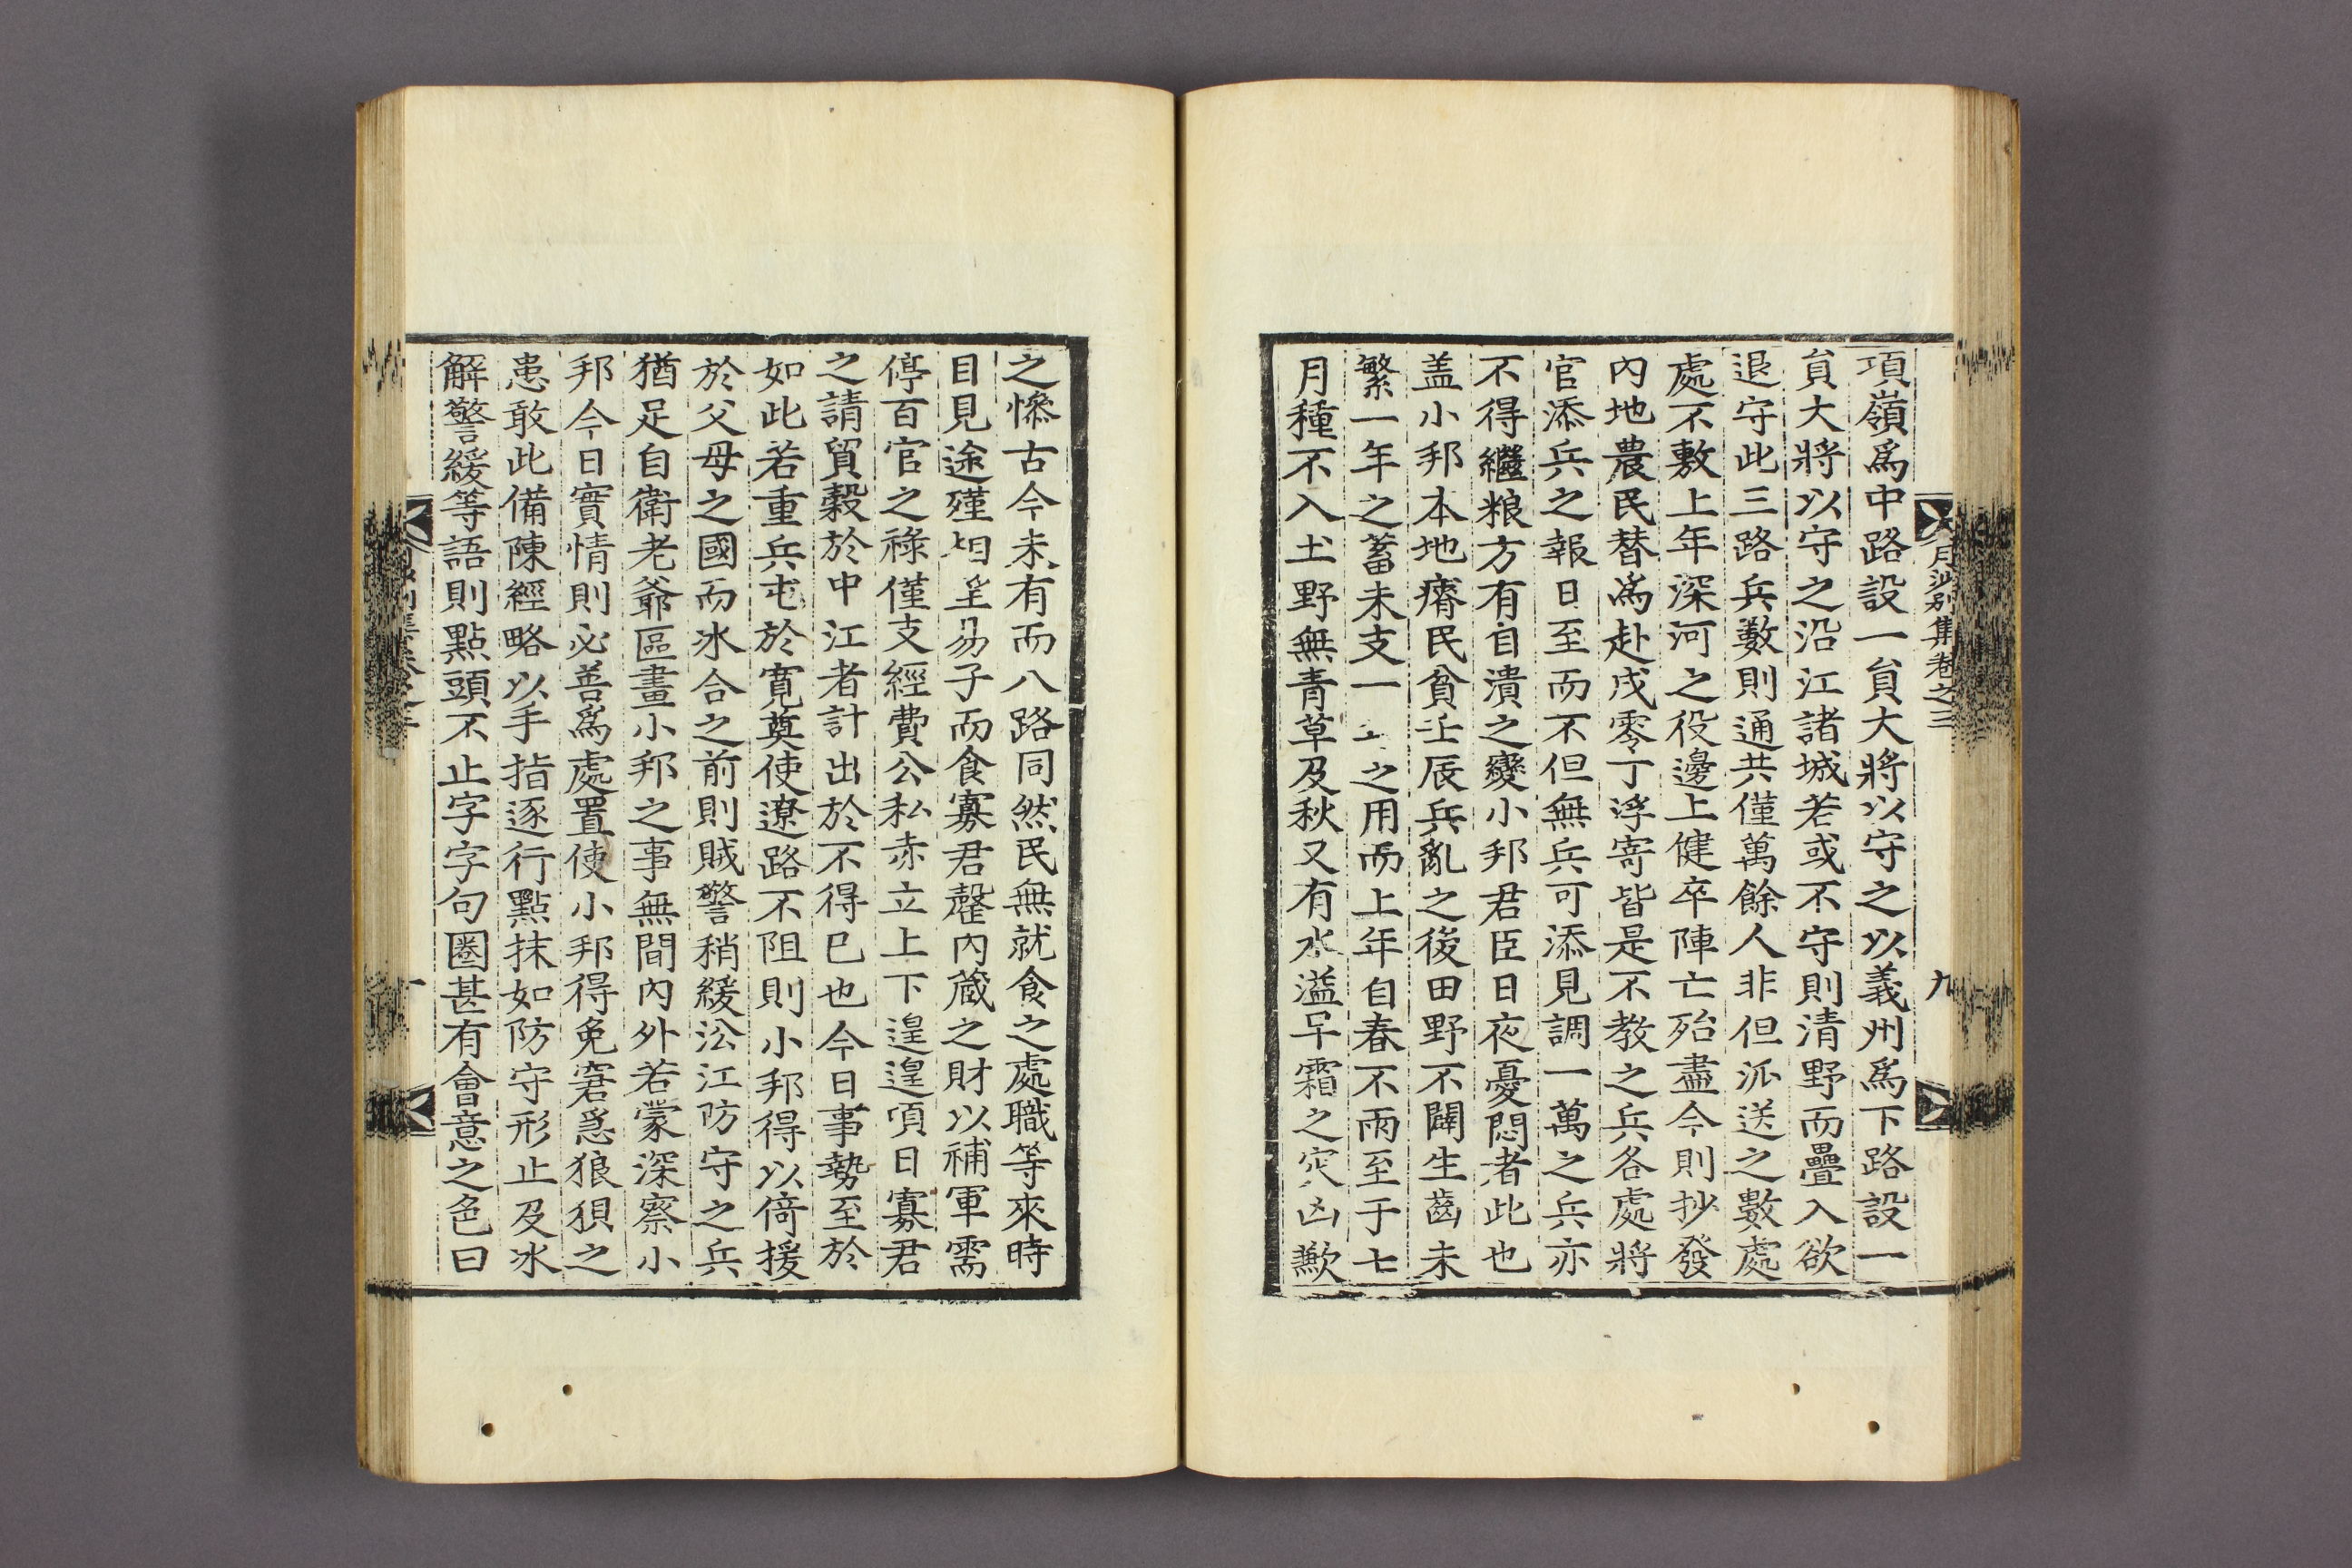 月沙別集卷之三
九
項嶺爲中路設一員大將以守之以義州爲下路設一
員大將以守之沿江諸城若或不守則清野而疊入欲
退守此三路兵數則通共僅萬餘人非但派送之數處
處不敷上年深河之役邊上健卒陣亡殆盡今則抄發
內地農民替爲赴戍零丁浮寄皆是不教之兵各處將
官添兵之報日至而不但無兵可添見調一萬之兵亦
不得繼粮方有自潰之變小邦君臣日夜憂悶者此也
盖小邦本地瘠民貧壬辰兵亂之後田野不闢生齒未
繁一年之蓄未支一之用而上年自春不雨至于七
月種不入土野無青草及秋又有水溢早霜之灾凶歉
之慘古今未有而八路同然民無就食之處職等來時
目見途殣相望易子而食寡君罄內藏之財以補軍需
停百官之祿僅支經費公私赤立上下遑遑頃日寡君
之請貿穀於中江者計出於不得已也今日事勢至於
如此若重兵屯於寬奠使遼路不阻則小邦得以倚援
於父母之國而氷合之前則賊警稍緩沿江防守之兵
猶足自衛老爺區畫小邦之事無間內外若蒙深察小
邦今日實情則必善爲處置使小邦得免窘急狼狽之
患敢此備陳經略以手指逐行點抹如防守形止及氷
解警緩等語則點頭不止字字句圈甚有會意之色曰